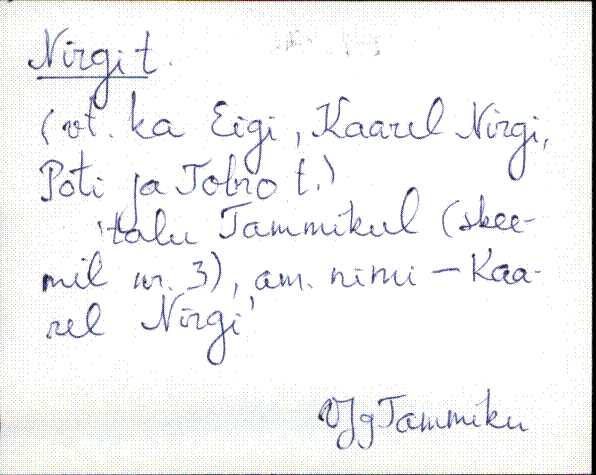 Nirgi t.
(vt. ka Eigi, Kaarel Nirgi,
Poti ja Tobro t.)
'talu Tammikul (skee-
mil nr. 3), am. nimi – Kaa-
rel Nirgi'
VJg Tammiku